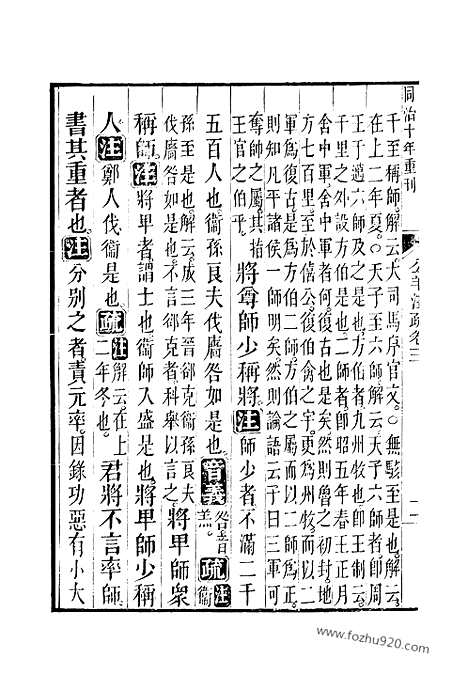 同治十年重刊
公羊注疏卷三
千至稱師○解云大司馬序官文○無駭至是也○解云
在上二年夏○天子至六師○解云天子六師者卽周
王于邁六師及之是也方伯者九州牧也卽王制云
千里之外設方伯是也二師者卽昭五年春王正月
舍中軍舍中軍者何復古也是矣然則魯之初封地
方七百里至於僖公復伯禽之宇更爲州牧而以二
軍爲復古是爲方伯二師方伯之屬而以二師爲正
則知凡平諸侯一師明矣然則論語云子曰三軍可
奪帥之屬其指
王官之伯乎
將尊師少稱將注師少者不滿二千
五百人也衞孫良夫伐廧咎如是也音義咎音羔疏注衞
孫至是也○解云成三年晉郤克衞孫良夫
伐廧咎如是也不言郤克者科舉以言之
將卑師衆
稱師注將卑者謂士也衞師入盛是也將卑師少稱
人注鄭人伐衞是也疏注解云在上二年冬也
君將不言率師
書其重者也注分別之者責元率因錄功惡有小大
www.fozhu920.com